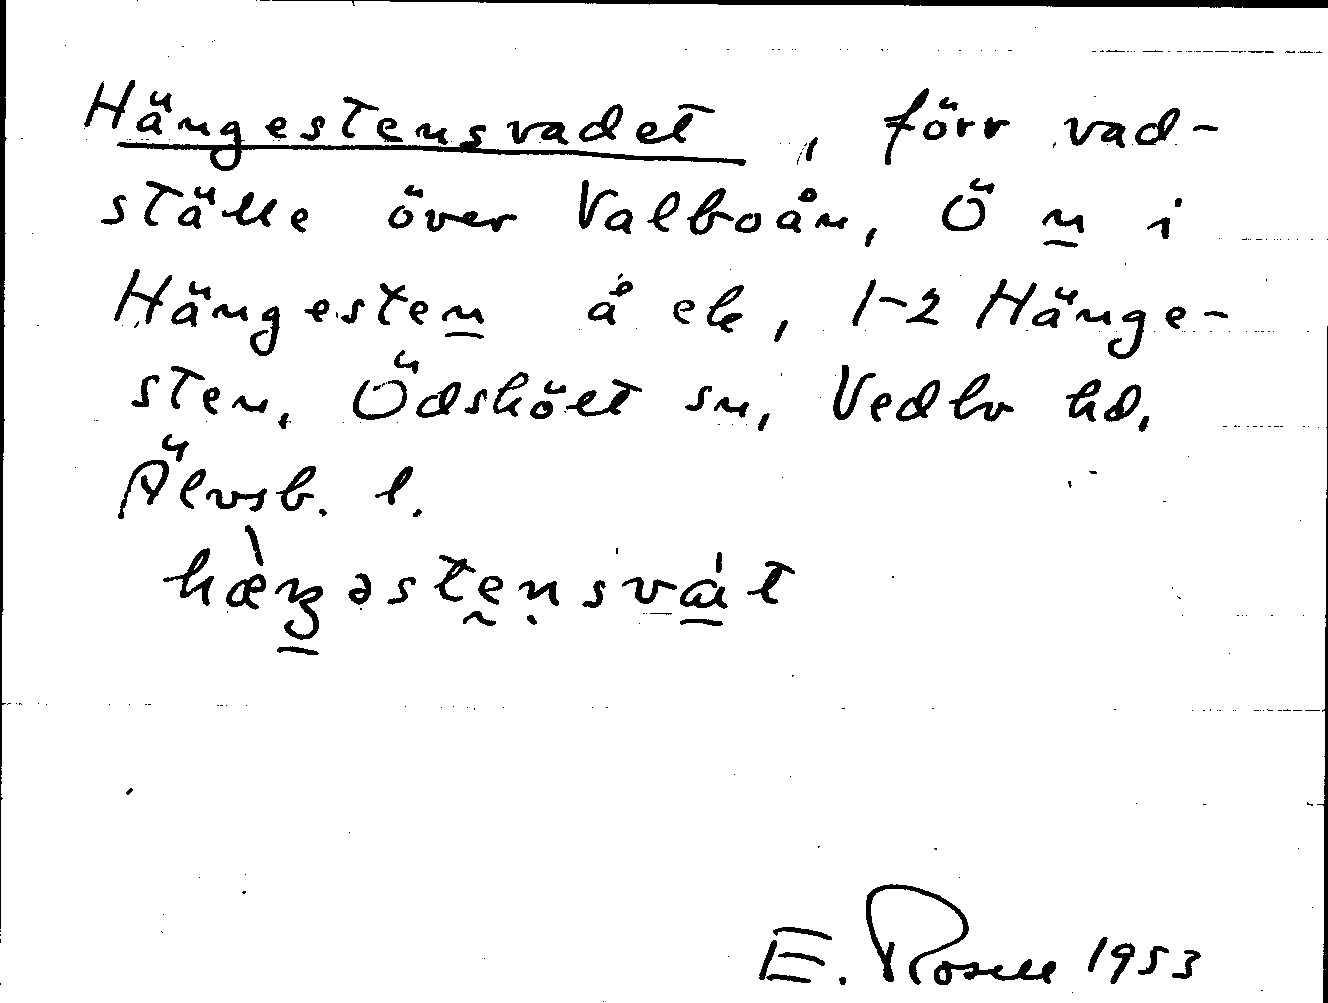 Hängestensvadet, förr vad-
ställe över Valboån, Ö n i
Hängesten å ek, 1-2 Hänge-
sten, Ödskölt sn, Vedbo hd,
Älvsb. l.
hæ̀ŋəstensvát
E. Rosell 1953